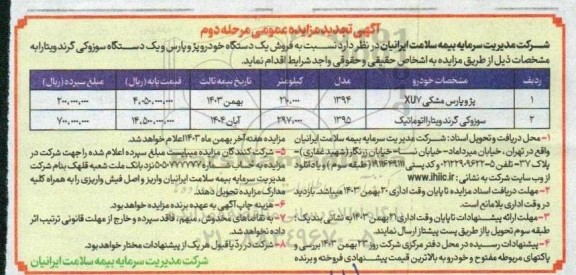 آگهی تجدید مزایده عمومی مرحله دوم
شرکت مدیریت سرمایه بیمه سلامت ایرانیان در نظر دارد نسبت به فروش یک دستگاه خودرو پژو پارس و یک دستگاه سوزوکی گرند ویتارا به
مشخصات ذیل از طریق مزایده به اشخاص حقیقی و حقوقی واجد شرایط اقدام نماید.
ردیف مشخصات خودرو مدل کیلومتر تاریخ بیمه ثالث قیمت پایه (ریال) مبلغ سپرده (ریال)
۱ پژو پارس مشکی XU7 ۱۳۹۴ ۲۱۰۰۰۰ بهمن ۱۴۰۳ ۴,۰۵۰,۰۰۰,۰۰۰ ۲۰۰,۰۰۰,۰۰۰
۲ سوزوکی گرند ویتارا اتوماتیک ۱۳۹۵ ۲۹۷۰۰۰ آبان ۱۴۰۴ ۱۴,۵۰۰,۰۰۰,۰۰۰ ۷۰۰,۰۰۰,۰۰۰
۱- محل دریافت و تحویل اسناد: شرکت مدیریت سرمایه بیمه سلامت ایرانیان
واقع در تهران، خیابان میرداماد- خیابان - خیابان زرنگار (شهید غفاری) -
پلاک ۳۷- تلفن ۵-۲۲۲۹۹۶۲۲ و کدپستی (طبقه سوم) و یا دانلود
از وب سایت شرکت به نشانی: www.ihiic.ir
۲- مهلت دریافت اسناد مزایده تا پایان وقت اداری ۲۰ بهمن ۱۴۰۳ میباشد. بازدید
در وقت اداری بلامانع است.
۳- مهلت ارائه پیشنهادات تا پایان وقت اداری ۲۱ بهمن ۱۴۰۳ به نشانی بند یک؛
طبقه سوم تحویل یا از طریق پست پیشتاز ارسال نمایند.
۴- پیشنهادات رسیده در محل دفتر مرکزی شرکت روز ۲۳ بهمن ۱۴۰۳ بررسی و
پاکتهای مربوطه مفتوح و خودرو به بالاترین قیمت پیشنهادی فروخته و برنده
مزایده هفته آخر بهمن ماه ۱۴۰۳ اعلام خواهد شد.
۵- شرکت کنندگان مزایده میبایست مبلغ سپرده اعلام شده را جهت شرکت در
مزایده به حساب نزد بانک ملت شعبه قلهک بنام شرکت
مدیریت سرمایه بیمه سلامت ایرانیان واریز و اصل فیش واریزی را به همراه کلیه
مدارک مزایده تحویل دهند.
۶- هزینه چاپ آگهی به عهده برنده مزایده خواهد بود.
۷- به تقاضاهای مخدوش، مبهم، فاقد سپرده و خارج از مهلت قانونی ترتیب اثر
داده نخواهد شد.
۸- شرکت در رد یا قبول هر یک از پیشنهادات مختار خواهد بود.
شرکت مدیریت سرمایه بیمه سلامت ایرانیان